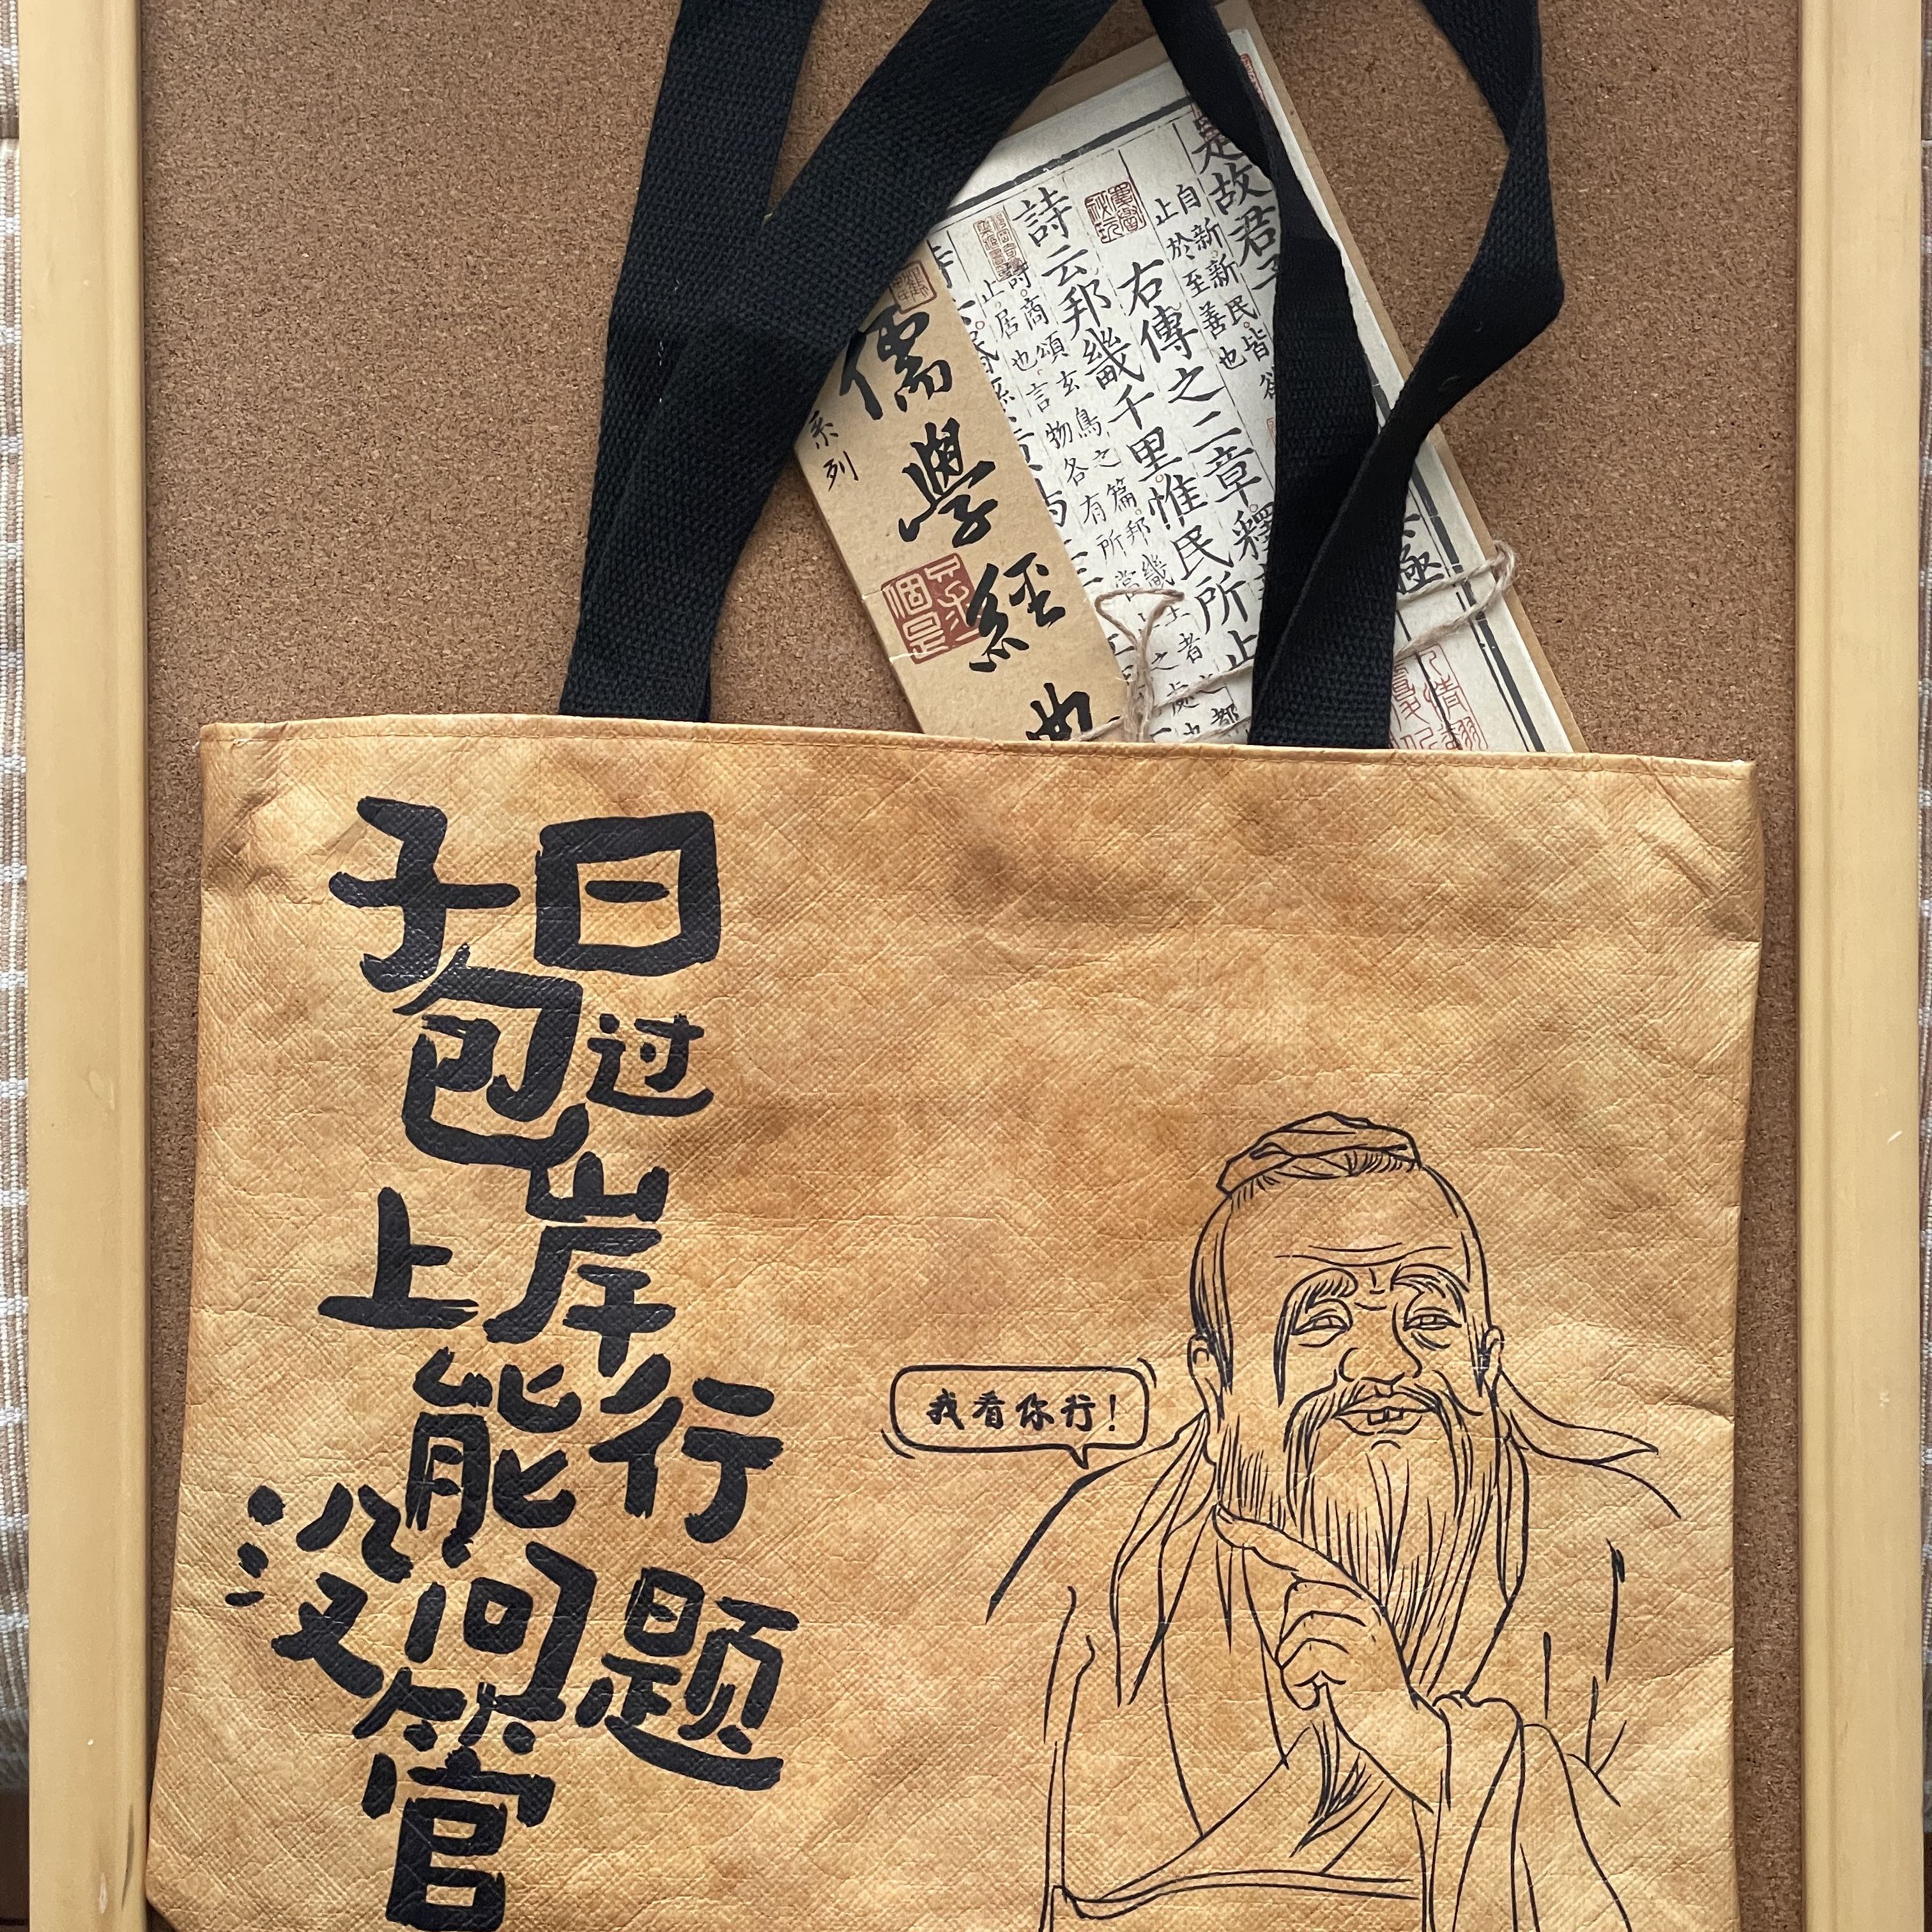 是故君子
極
自新新民皆欲
止於至善也
右傳之二章釋
詩云邦畿千里惟民所止
詩商頌玄鳥之篇邦畿王者之都
止居也言物各有所當止之處也
儒學經典
系列
子曰
包过
上岸
能行
没问题
管
我看你行！